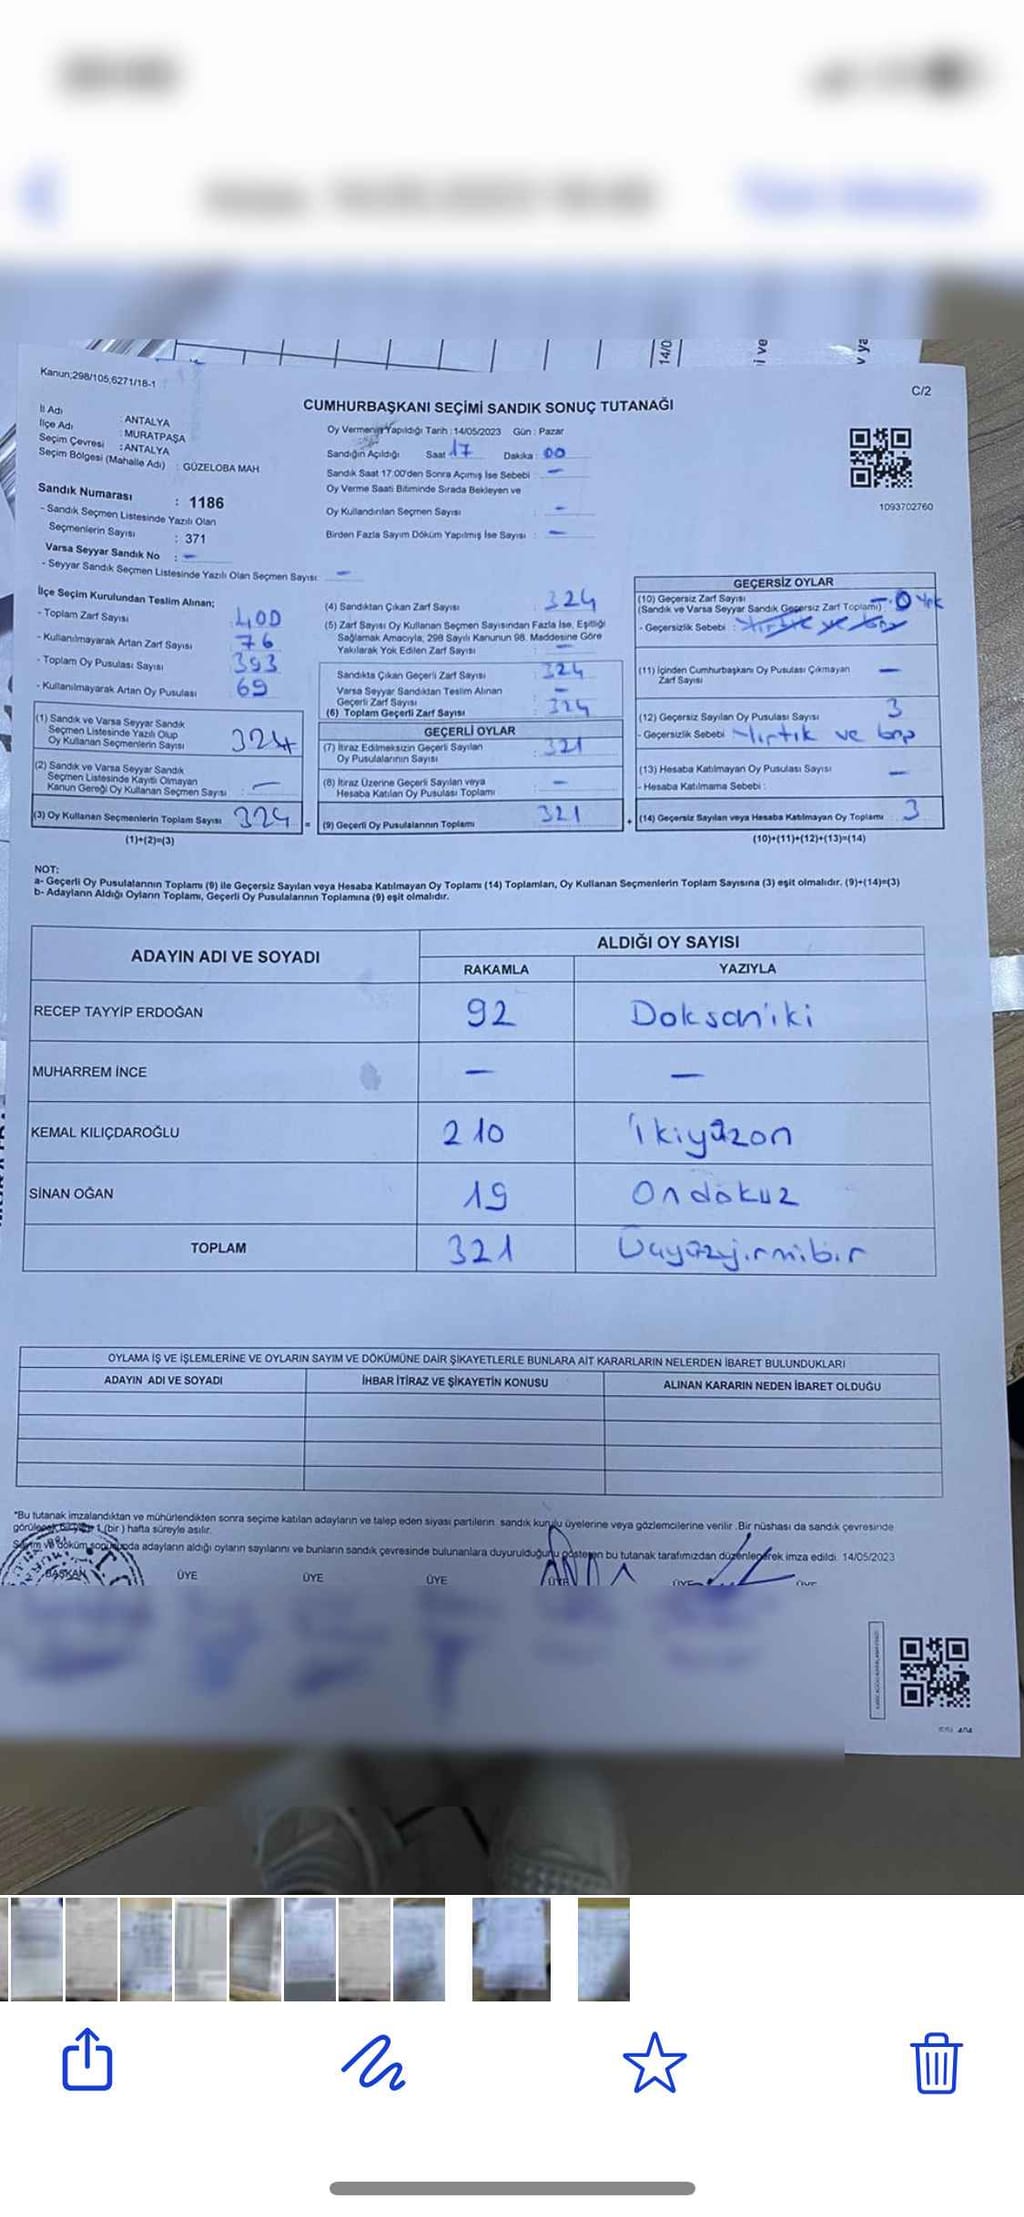 14/0
i ve
v ya
Kanun;298/105,6271/18-1
C/2
CUMHURBAŞKANI SEÇİMİ SANDIK SONUÇ TUTANAĞI
İl Adı : ANTALYA
İlçe Adı : MURATPAŞA
Seçim Çevresi : ANTALYA
Seçim Bölgesi (Mahalle Adı) : GÜZELOBA MAH.
Sandık Numarası : 1186
- Sandık Seçmen Listesinde Yazılı Olan
Seçmenlerin Sayısı : 371
Varsa Seyyar Sandık No : -
- Seyyar Sandık Seçmen Listesinde Yazılı Olan Seçmen Sayısı: -
Oy Vermenin Yapıldığı Tarih : 14/05/2023 Gün : Pazar
Sandığın Açıldığı Saat 17 Dakika : 00
Sandık Saat 17:00'den Sonra Açımış İse Sebebi : -
Oy Verme Saati Bitiminde Sırada Bekleyen ve
Oy Kullandırılan Seçmen Sayısı : -
Birden Fazla Sayım Döküm Yapılmış İse Sayısı : -
1093702760
İlçe Seçim Kurulundan Teslim Alınan;
- Toplam Zarf Sayısı : 400
- Kullanılmayarak Artan Zarf Sayısı : 76
- Toplam Oy Pusulası Sayısı : 393
- Kullanılmayarak Artan Oy Pusulası : 69
(1) Sandık ve Varsa Seyyar Sandık
Seçmen Listesinde Yazılı Olup
Oy Kullanan Seçmenlerin Sayısı : 324
(2) Sandık ve Varsa Seyyar Sandık
Seçmen Listesinde Kayıtlı Olmayan
Kanun Gereği Oy Kullanan Seçmen Sayısı : -
(3) Oy Kullanan Seçmenlerin Toplam Sayısı : 324 =
(1)+(2)=(3)
(4) Sandıktan Çıkan Zarf Sayısı : 324
(5) Zarf Sayısı Oy Kullanan Seçmen Sayısından Fazla İse, Eşitliği
Sağlamak Amacıyla, 298 Sayılı Kanunun 98. Maddesine Göre
Yakılarak Yok Edilen Zarf Sayısı : -
Sandıkta Çıkan Geçerli Zarf Sayısı : 324
Varsa Seyyar Sandıktan Teslim Alınan
Geçerli Zarf Sayısı : -
(6) Toplam Geçerli Zarf Sayısı : 324
GEÇERLİ OYLAR
(7) İtiraz Edilmeksizin Geçerli Sayılan
Oy Pusulalarının Sayısı : 321
(8) İtiraz Üzerine Geçerli Sayılan veya
Hesaba Katılan Oy Pusulası Toplamı : -
(9) Geçerli Oy Pusulalarının Toplamı : 321 +
GEÇERSİZ OYLAR
(10) Geçersiz Zarf Sayısı
(Sandık ve Varsa Seyyar Sandık Geçersiz Zarf Toplamı) : 0 Yok
- Geçersizlik Sebebi :
(11) İçinden Cumhurbaşkanı Oy Pusulası Çıkmayan
Zarf Sayısı : -
(12) Geçersiz Sayılan Oy Pusulası Sayısı : 3
- Geçersizlik Sebebi : Yırtık ve boş
(13) Hesaba Katılmayan Oy Pusulası Sayısı : -
- Hesaba Katılmama Sebebi :
(14) Geçersiz Sayılan veya Hesaba Katılmayan Oy Toplamı : 3
(10)+(11)+(12)+(13)=(14)
NOT:
a- Geçerli Oy Pusulalarının Toplamı (9) ile Geçersiz Sayılan veya Hesaba Katılmayan Oy Toplamı (14) Toplamları, Oy Kullanan Seçmenlerin Toplam Sayısına (3) eşit olmalıdır. (9)+(14)=(3)
b- Adayların Aldığı Oyların Toplamı, Geçerli Oy Pusulalarının Toplamına (9) eşit olmalıdır.
ADAYIN ADI VE SOYADI
ALDIĞI OY SAYISI
RAKAMLA YAZIYLA
RECEP TAYYİP ERDOĞAN 92 Doksaniki
MUHARREM İNCE - -
KEMAL KILIÇDAROĞLU 210 İkiyüzon
SİNAN OĞAN 19 Ondokuz
TOPLAM 321 Üçyüzyirmibir
OYLAMA İŞ VE İŞLEMLERİNE VE OYLARIN SAYIM VE DÖKÜMÜNE DAİR ŞİKAYETLERLE BUNLARA AİT KARARLARIN NELERDEN İBARET BULUNDUKLARI
ADAYIN ADI VE SOYADI İHBAR İTİRAZ VE ŞİKAYETİN KONUSU ALINAN KARARIN NEDEN İBARET OLDUĞU
*Bu tutanak imzalandıktan ve mühürlendikten sonra seçime katılan adayların ve talep eden siyasi partilerin sandık kurulu üyelerine veya gözlemcilerine verilir .Bir nüshası da sandık çevresinde
görülecek bir yere 1 (bir ) hafta süreyle asılır.
Sayım ve döküm sonucunda adayların aldığı oyların sayılarını ve bunların sandık çevresinde bulunanlara duyurulduğunu gösteren bu tutanak tarafımızdan düzenlenerek imza edildi. 14/05/2023
BAŞKAN ÜYE ÜYE ÜYE ÜYE ÜYE ÜYE